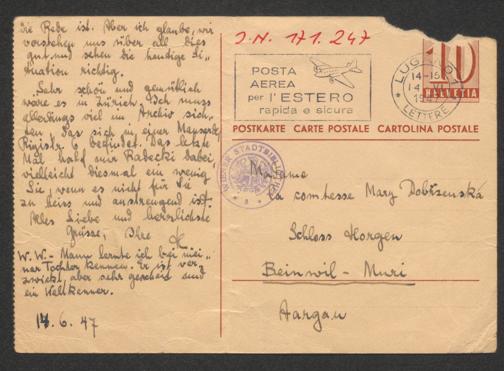 die Rede ist. Aber ich glaube, wir
verstehen uns über all dies
gut und sehen die heutige Si"
tuation richtig.
Sehr schön und gemütlich
wäre es in Zürich. Ich muss
allerdings viel im Archiv sich„
ten das sich in einer Mansarde
Registr. 6 befindet. Das letzte
Mal half mir Radecki dabei,
vielleicht diesmal ein wenig
Sie, wenn es nicht für Sie
zu heiss und anstrengend ist.
Alles Liebe und herzlichste
Grüsse, Ihre
W. W. - Mann lernte ich bei mei„
ner Tochter kennen. Er ist ver„
zwickt, aber sehr gescheit und
ein Weltkenner.
14. 6. 47
J.N. 171.247
POSTA
AEREA
per l'ESTERO
rapida e sicura
LUGANO 1
14-15
LETTERE
10
HELVETIA
POSTKARTE CARTE POSTALE CARTOLINA POSTALE
WIENER STADTBIBLIOTHEK
Madame
la comtesse Mary Dobrzenská
Schloss Horgen
Beinwil - Muri
Aargau